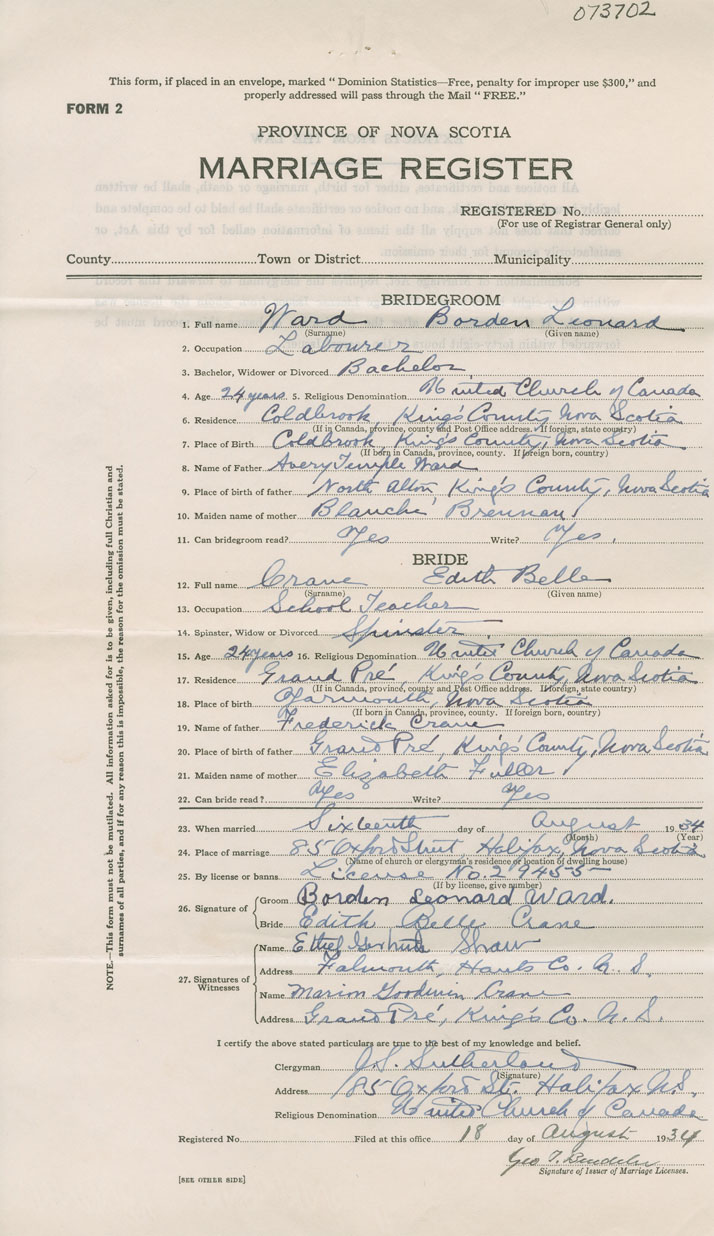 073702
This form, if placed in an envelope, marked "Dominion Statistics—Free, penalty for improper use $300," and
properly addressed will pass through the Mail "FREE."
FORM 2
PROVINCE OF NOVA SCOTIA
MARRIAGE REGISTER
REGISTERED No.
(For use of Registrar General only)
County Town or District Municipality
BRIDEGROOM
1. Full name Ward Borden Leonard
(Surname) (Given name)
2. Occupation Labourer
3. Bachelor, Widower or Divorced Bachelor
4. Age 24 years 5. Religious Denomination United Church of Canada
6. Residence Coldbrook, King's County, Nova Scotia
(If in Canada, province, county and Post Office address. If foreign, state country)
7. Place of Birth Coldbrook, King's County, Nova Scotia
(If born in Canada, province, county. If foreign born, country)
8. Name of Father Avery Temple Ward
9. Place of birth of father North Alton, King's County, Nova Scotia
10. Maiden name of mother Blanche Brennan
11. Can bridegroom read? Yes Write? Yes.
BRIDE
12. Full name Crane Edith Belle
(Surname) (Given name)
13. Occupation School Teacher
14. Spinster, Widow or Divorced Spinster
15. Age 24 years 16. Religious Denomination United Church of Canada
17. Residence Grand Pré, King's County, Nova Scotia
(If in Canada, province, county and Post Office address. If foreign, state country)
18. Place of birth Yarmouth, Nova Scotia
(If born in Canada, province, county. If foreign born, country)
19. Name of father Frederick Crane
20. Place of birth of father Grand Pré, King's County, Nova Scotia
21. Maiden name of mother Elizabeth Fuller
22. Can bride read? Yes Write? Yes
23. When married Sixteenth day of August 1934
(Month) (Year)
24. Place of marriage 85 Oxford Street, Halifax, Nova Scotia
(Name of church or clergyman's residence or location of dwelling house)
25. By license or banns License No. 29455
(If by license, give number)
26. Signature of
Groom Borden Leonard Ward.
Bride Edith Belle Crane
27. Signatures of Witnesses
Name Ethel Gertrude Shaw
Address Falmouth, Hants Co. N. S.
Name Marion Goodwin Crane
Address Grand Pré, King's Co. N. S.
I certify the above stated particulars are true to the best of my knowledge and belief.
Clergyman J.S. Sutherland
(Signature)
Address 85 Oxford St. Halifax N.S.
Religious Denomination United Church of Canada
Registered No. Filed at this office 18 day of August 1934
Geo T.
Signature of Issuer of Marriage Licenses.
[SEE OTHER SIDE]
NOTE.—This form must not be mutilated. All information asked for is to be given, including full Christian and
surnames of all parties, and if for any reason this is impossible, the reason for the omission must be stated.